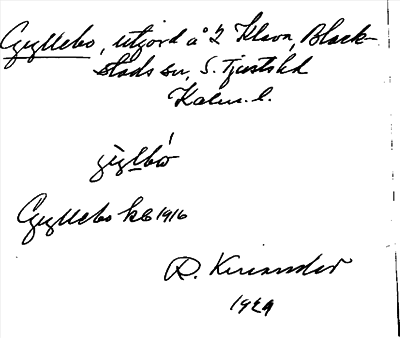 Gyllebo, utjord å 2 Klson, Black-
stads sn, S. Tjusts hd
Kalm. l.
Gyllebo kb 1916
R. Kinander
1929